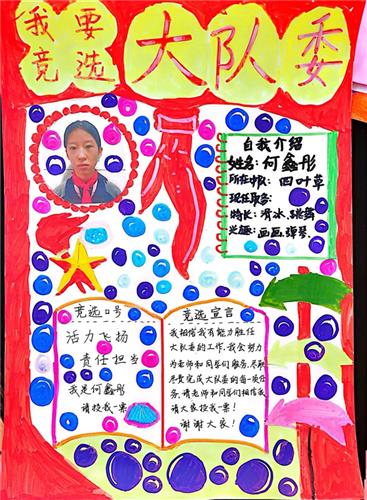 我要
竞选
大队委
自我介绍
姓名:何鑫彤
所在中队:四叶草
现任职务:
特长:滑冰、跳舞
兴趣:画画、弹琴
竞选口号
活力飞扬
责任担当
我是何鑫彤
请投我一票
竞选宣言
我相信我有能力胜任
大队委的工作,我会努力
为老师和同学们服务,尽职
尽责完成大队委的每一项任
务,请老师和同学们相信我
请大家投我一票!
谢谢大家!